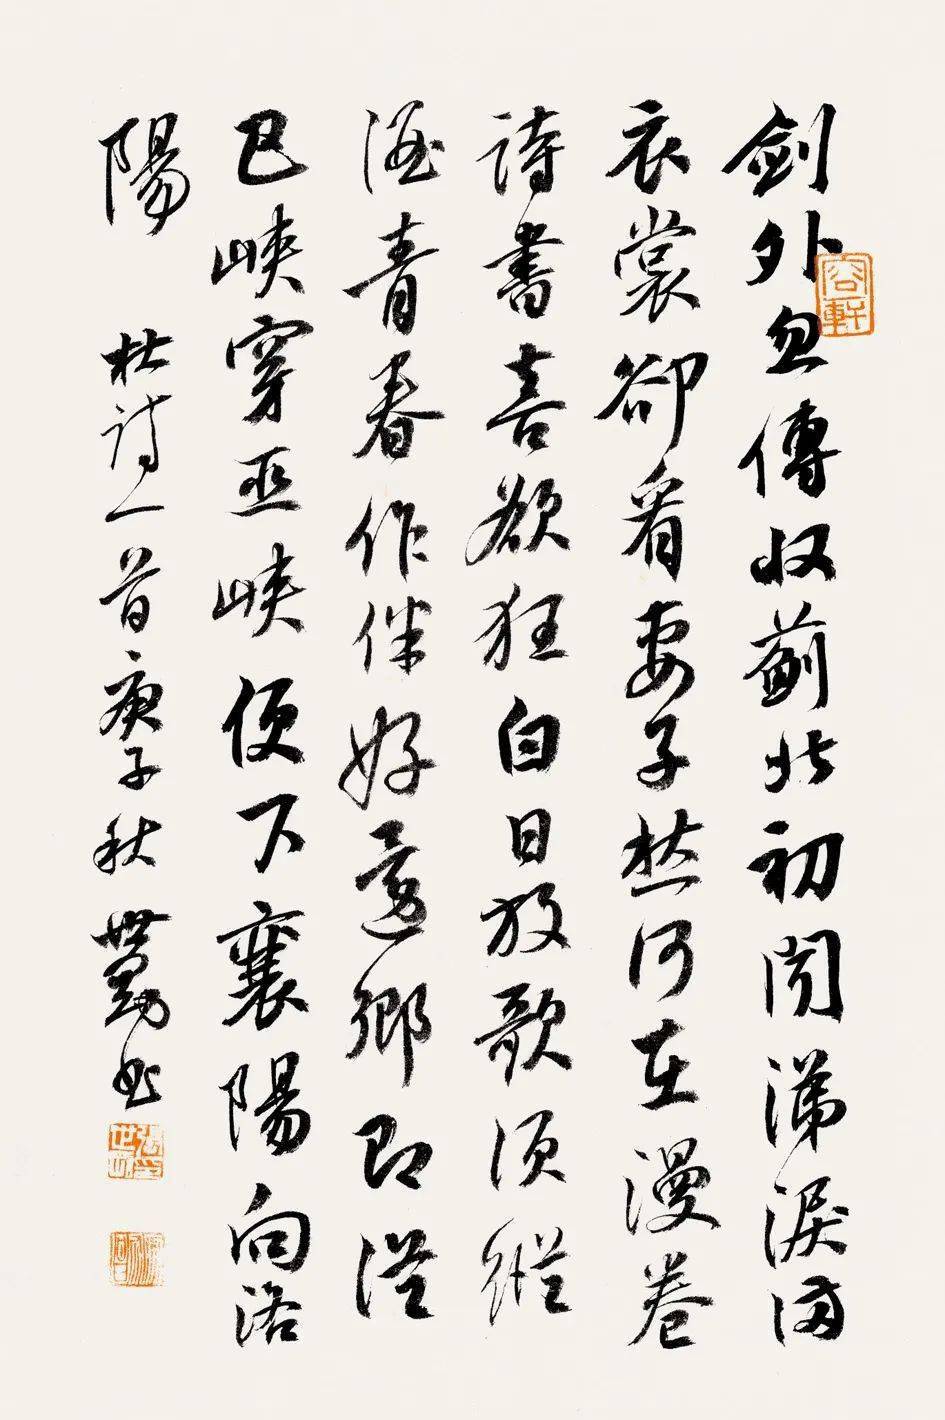 劍外忽傳収薊北初聞涕淚滿
衣裳卻看妻子愁何在漫卷
詩書喜欲狂白日放歌須縱
酒青春作伴好還鄉即從
巴峽穿巫峽便下襄陽向洛
陽 杜詩一首庚子秋 世書